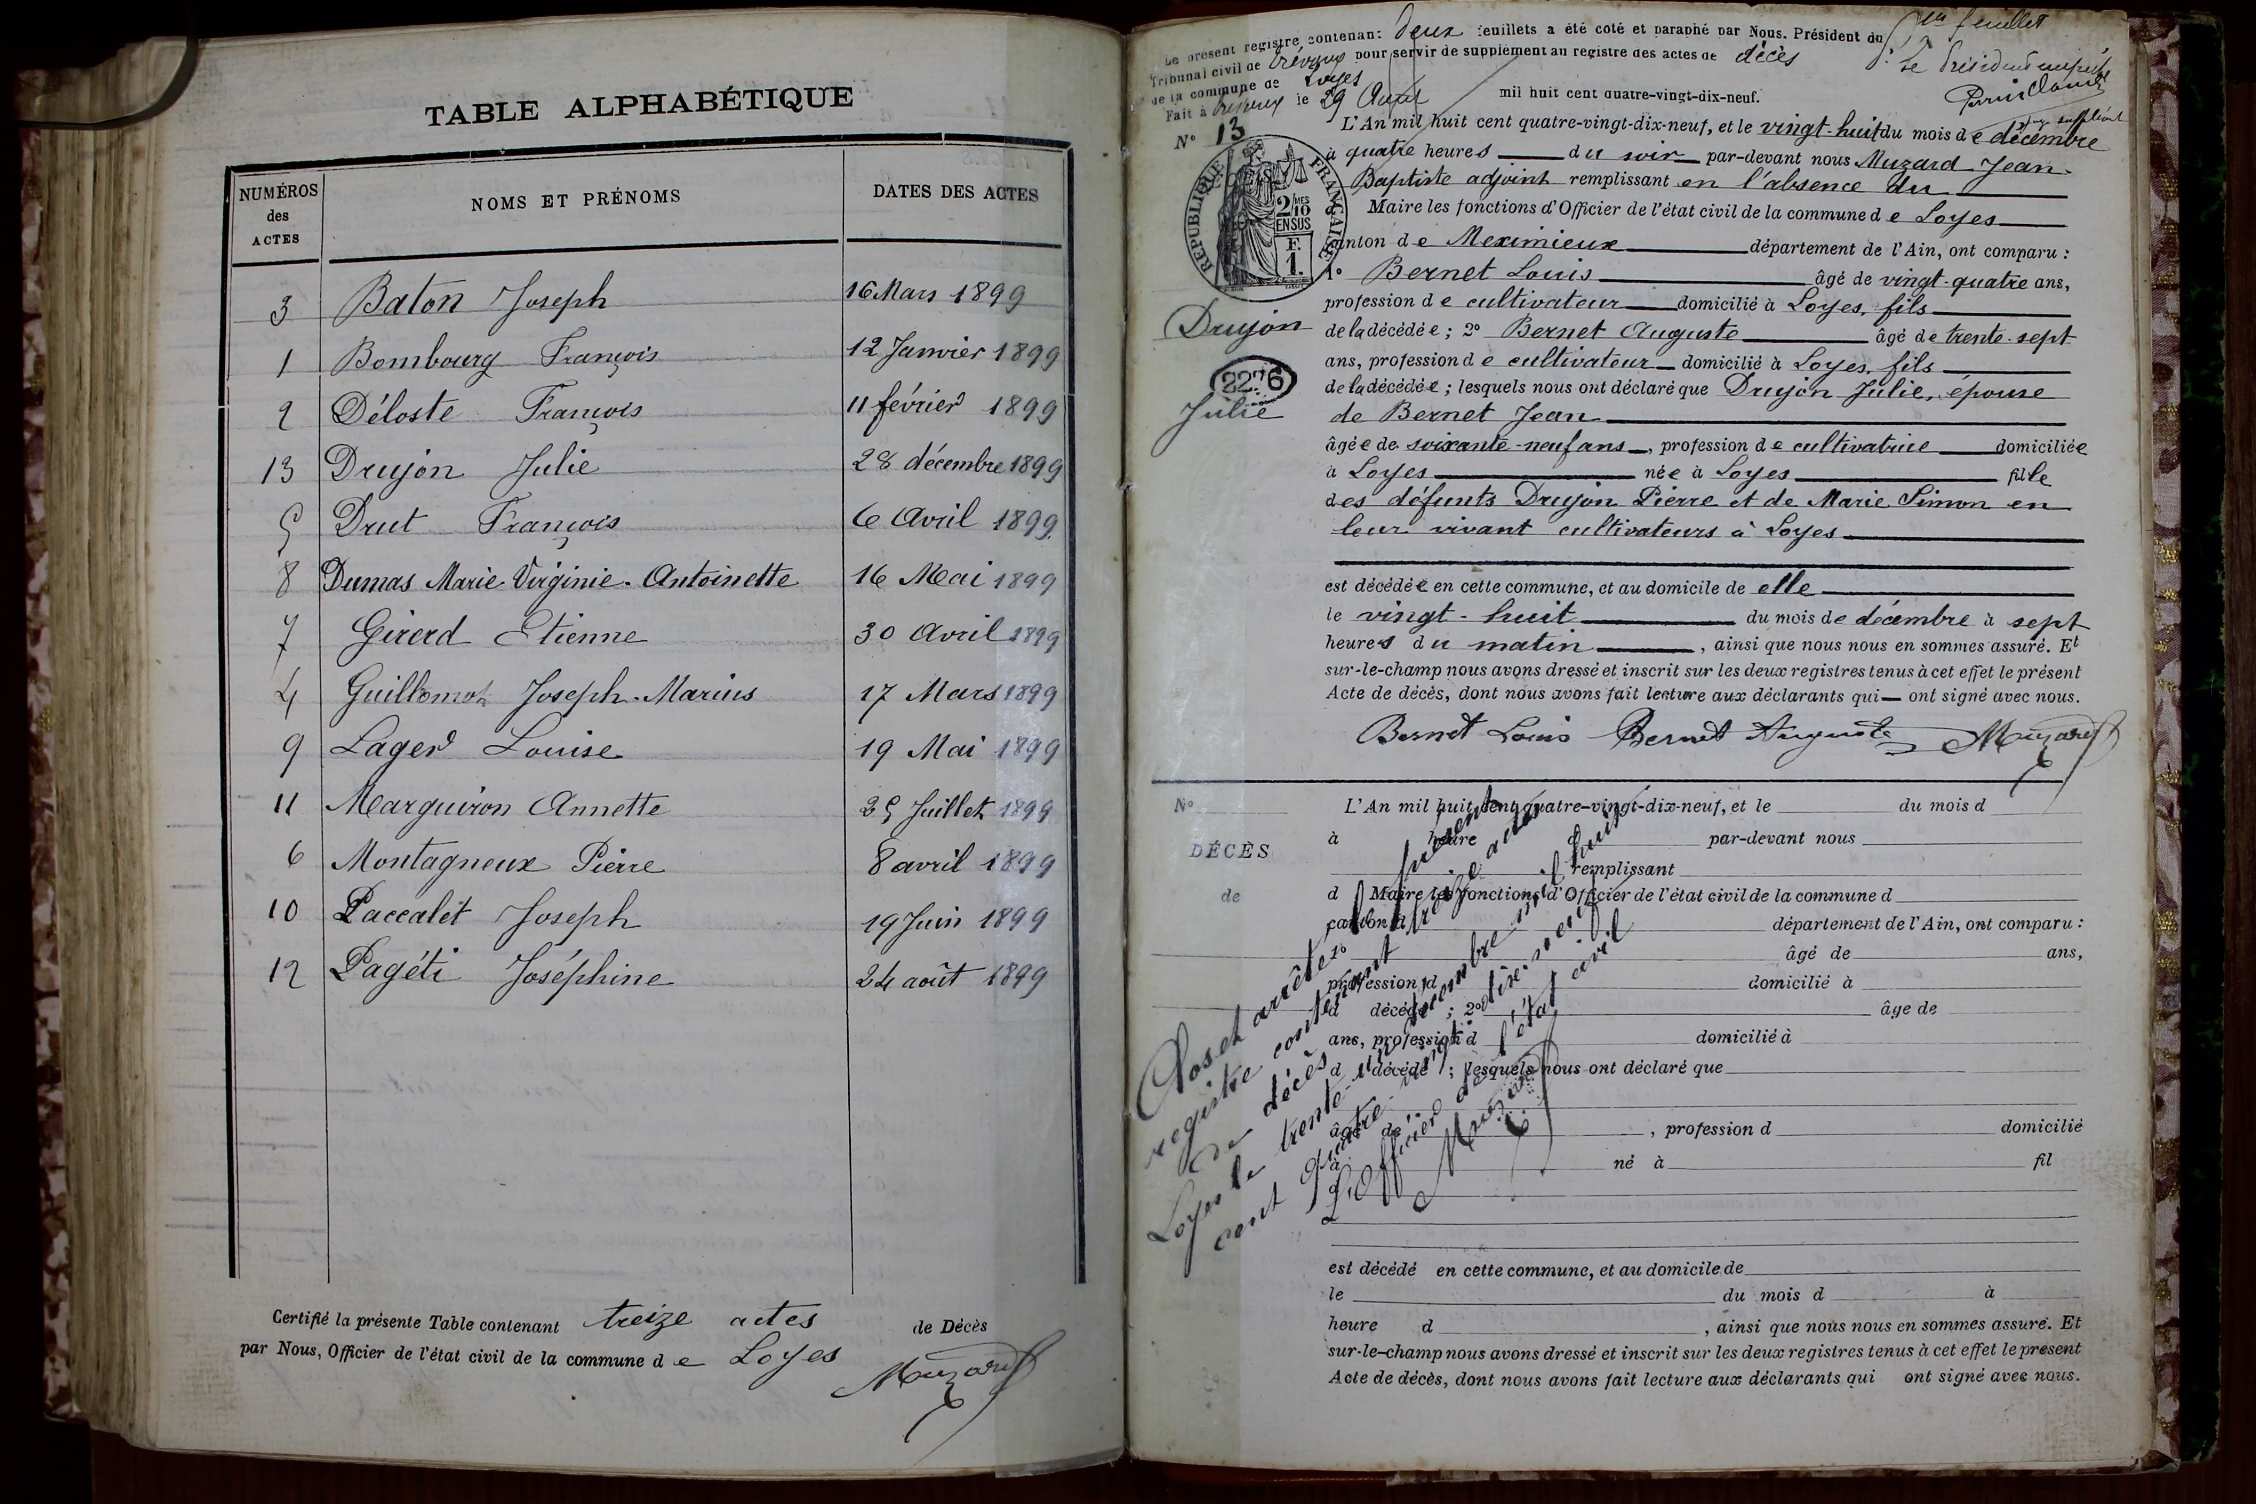 TABLE ALPHABÉTIQUE
NUMÉROS des ACTES
NOMS ET PRÉNOMS
DATES DES ACTES
3 Baton Joseph 16 Mars 1899
1 Bombourg François 12 Janvier 1899
2 Déloste François 11 février 1899
13 Drujon Julie 28 décembre 1899
5 Drut François 6 Avril 1899
8 Dumas Marie-Virginie-Antoinette 16 Mai 1899
7 Girerd Etienne 30 Avril 1899
4 Guillemot Joseph-Marius 17 Mars 1899
9 Lager Louise 19 Mai 1899
11 Marguiron Annette 25 Juillet 1899
6 Montagneux Pierre 8 avril 1899
10 Paccalet Joseph 19 Juin 1899
12 Pagéti Joséphine 24 août 1899
Certifié la présente Table contenant treize actes de Décès
par Nous, Officier de l'état civil de la commune de Loyes
Muzard
Le présent registre contenant deux feuillets a été coté et paraphé par Nous, Président du
Tribunal civil de Trévoux pour servir de supplément au registre des actes de décès
de la commune de Loyes
Fait à Trévoux le 29 mil huit cent quatre-vingt-dix-neuf.
1er feuillet
Le Président empêché
N° 13
RÉPUBLIQUE FRANÇAISE
2/10 MES
EN SUS
F.
1.
Drujon
2276
Julie
L'An mil huit cent quatre-vingt-dix-neuf, et le vingt-huit du mois de décembre
à quatre heures du soir par-devant nous Muzard Jean-
Baptiste adjoint remplissant en l'absence du
Maire les fonctions d'Officier de l'état civil de la commune de Loyes
canton de Meximieux département de l'Ain, ont comparu :
1° Bernet Louis âgé de vingt-quatre ans,
profession de cultivateur domicilié à Loyes, fils
de la décédée ; 2° Bernet Auguste âgé de trente-sept
ans, profession de cultivateur domicilié à Loyes, fils
de la décédée ; lesquels nous ont déclaré que Drujon Julie, épouse
de Bernet Jean
âgée de soixante-neuf ans, profession de cultivatrice domiciliée
à Loyes née à Loyes fille
des défunts Drujon Pierre et de Marie Simon en
leur vivant cultivateurs à Loyes
est décédée en cette commune, et au domicile de elle
le vingt-huit du mois de décembre à sept
heures du matin, ainsi que nous nous en sommes assuré. Et
sur-le-champ nous avons dressé et inscrit sur les deux registres tenus à cet effet le présent
Acte de décès, dont nous avons fait lecture aux déclarants qui ont signé avec nous.
Bernet Louis Bernet Auguste Muzard
N°
DÉCÈS
de
L'An mil huit cent quatre-vingt-dix-neuf, et le du mois d
à heure d par-devant nous
remplissant
d Maire les fonctions d'Officier de l'état civil de la commune d
canton d département de l'Ain, ont comparu :
1° âgé de ans,
profession d domicilié à
d décédé ; 2° âge de
ans, profession d domicilié à
d décédé ; lesquels nous ont déclaré que
âgé de , profession d domicilié
à né à fil
est décédé en cette commune, et au domicile de
le du mois d à
heure d , ainsi que nous nous en sommes assuré. Et
sur-le-champ nous avons dressé et inscrit sur les deux registres tenus à cet effet le présent
Acte de décès, dont nous avons fait lecture aux déclarants qui ont signé avec nous.
Clos et arrêté le présent
registre contenant treize actes
de décès
Loyes le trente-un décembre mil huit
cent quatre-vingt-dix-neuf
L'Officier de l'état civil
Muzard